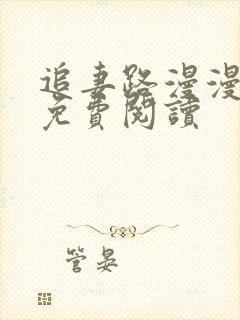 追妻路漫漫
免費閱讀
管晏